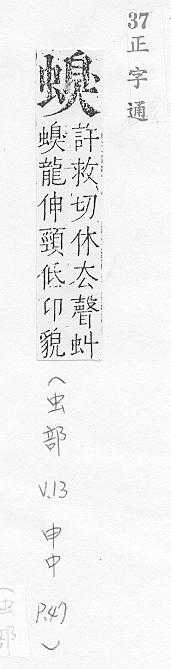 37正字通
螑
許救切休去聲虯
螑龍伸頸低卬貌
(虫部 V.13 申中 P.47)